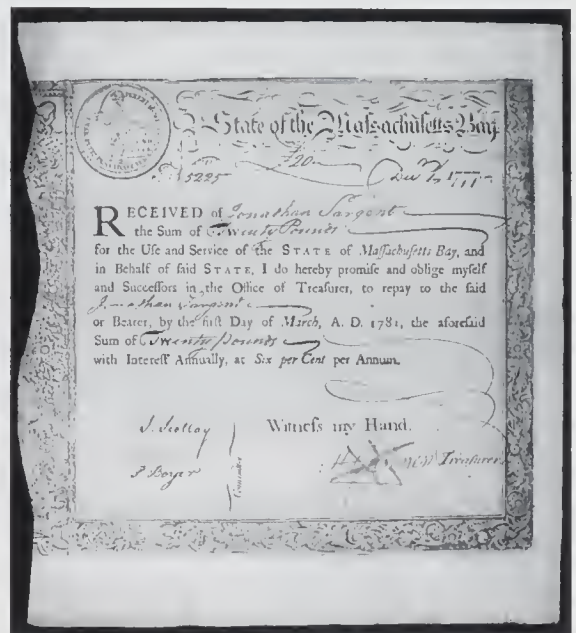 State of the Massachusetts Bay
5225 £20 Dec 1777
RECEIVED of Jonathan Sargent
the Sum of Twenty Pounds
for the Use and Service of the STATE of Maſſachuſetts Bay, and
in Behalf of ſaid STATE, I do hereby promiſe and oblige myſelf
and Succeſſors in the Office of Treaſurer, to repay to the ſaid
Jonathan Sargent
or Bearer, by the firſt Day of March, A. D. 1781, the aforeſaid
Sum of Twenty Pounds
with Intereſt Annually, at Six per Cent per Annum.
Witneſs my Hand.
J. Scollay
P Boyer
Committee
Treaſurer